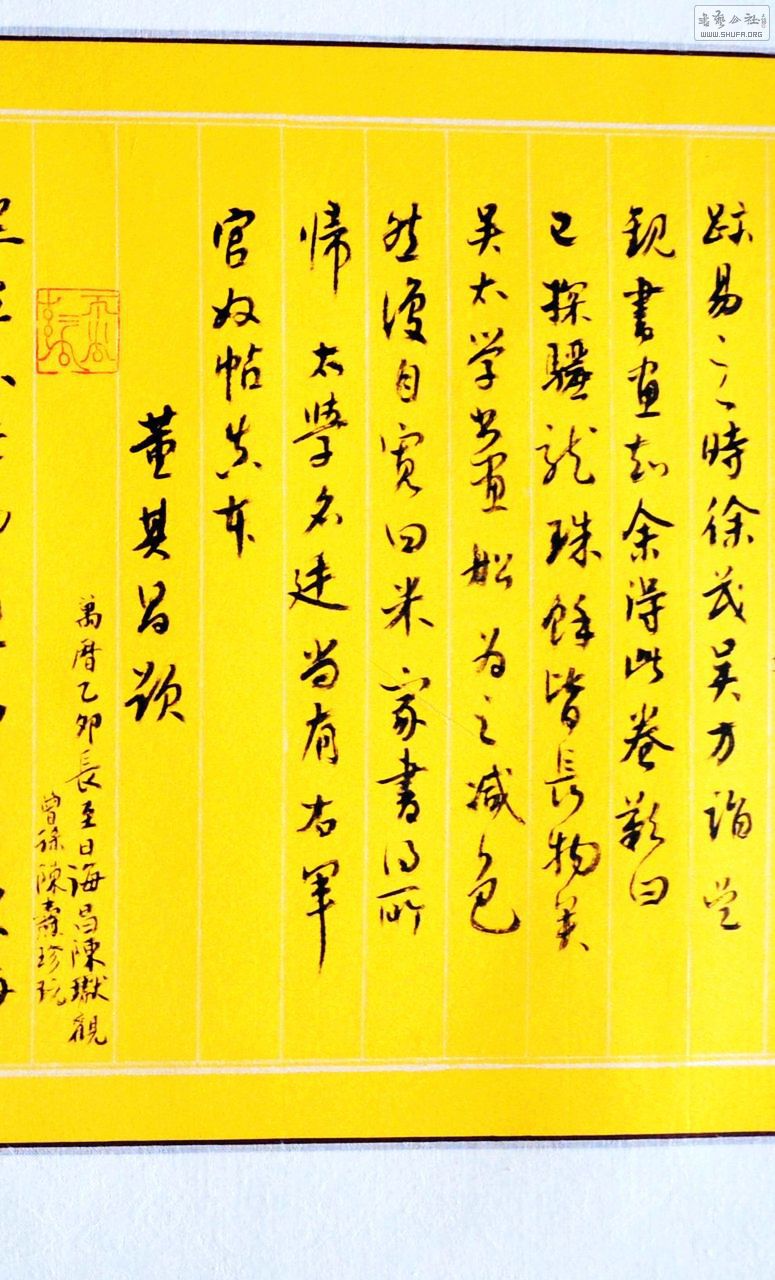 跡易之時徐茂吳方詣官
觀書畫知余得此卷歎曰
已探驪龍珠餘皆長物矣
吳太學書畫船為之減色
然後自寬曰米家書得所
歸 太學名廷尚有右軍
官奴帖真本
董其昌題
萬曆乙卯長至日海昌陳瓛觀
曾徐陳壽珍玩
书艺公社
WWW.SHUFA.ORG